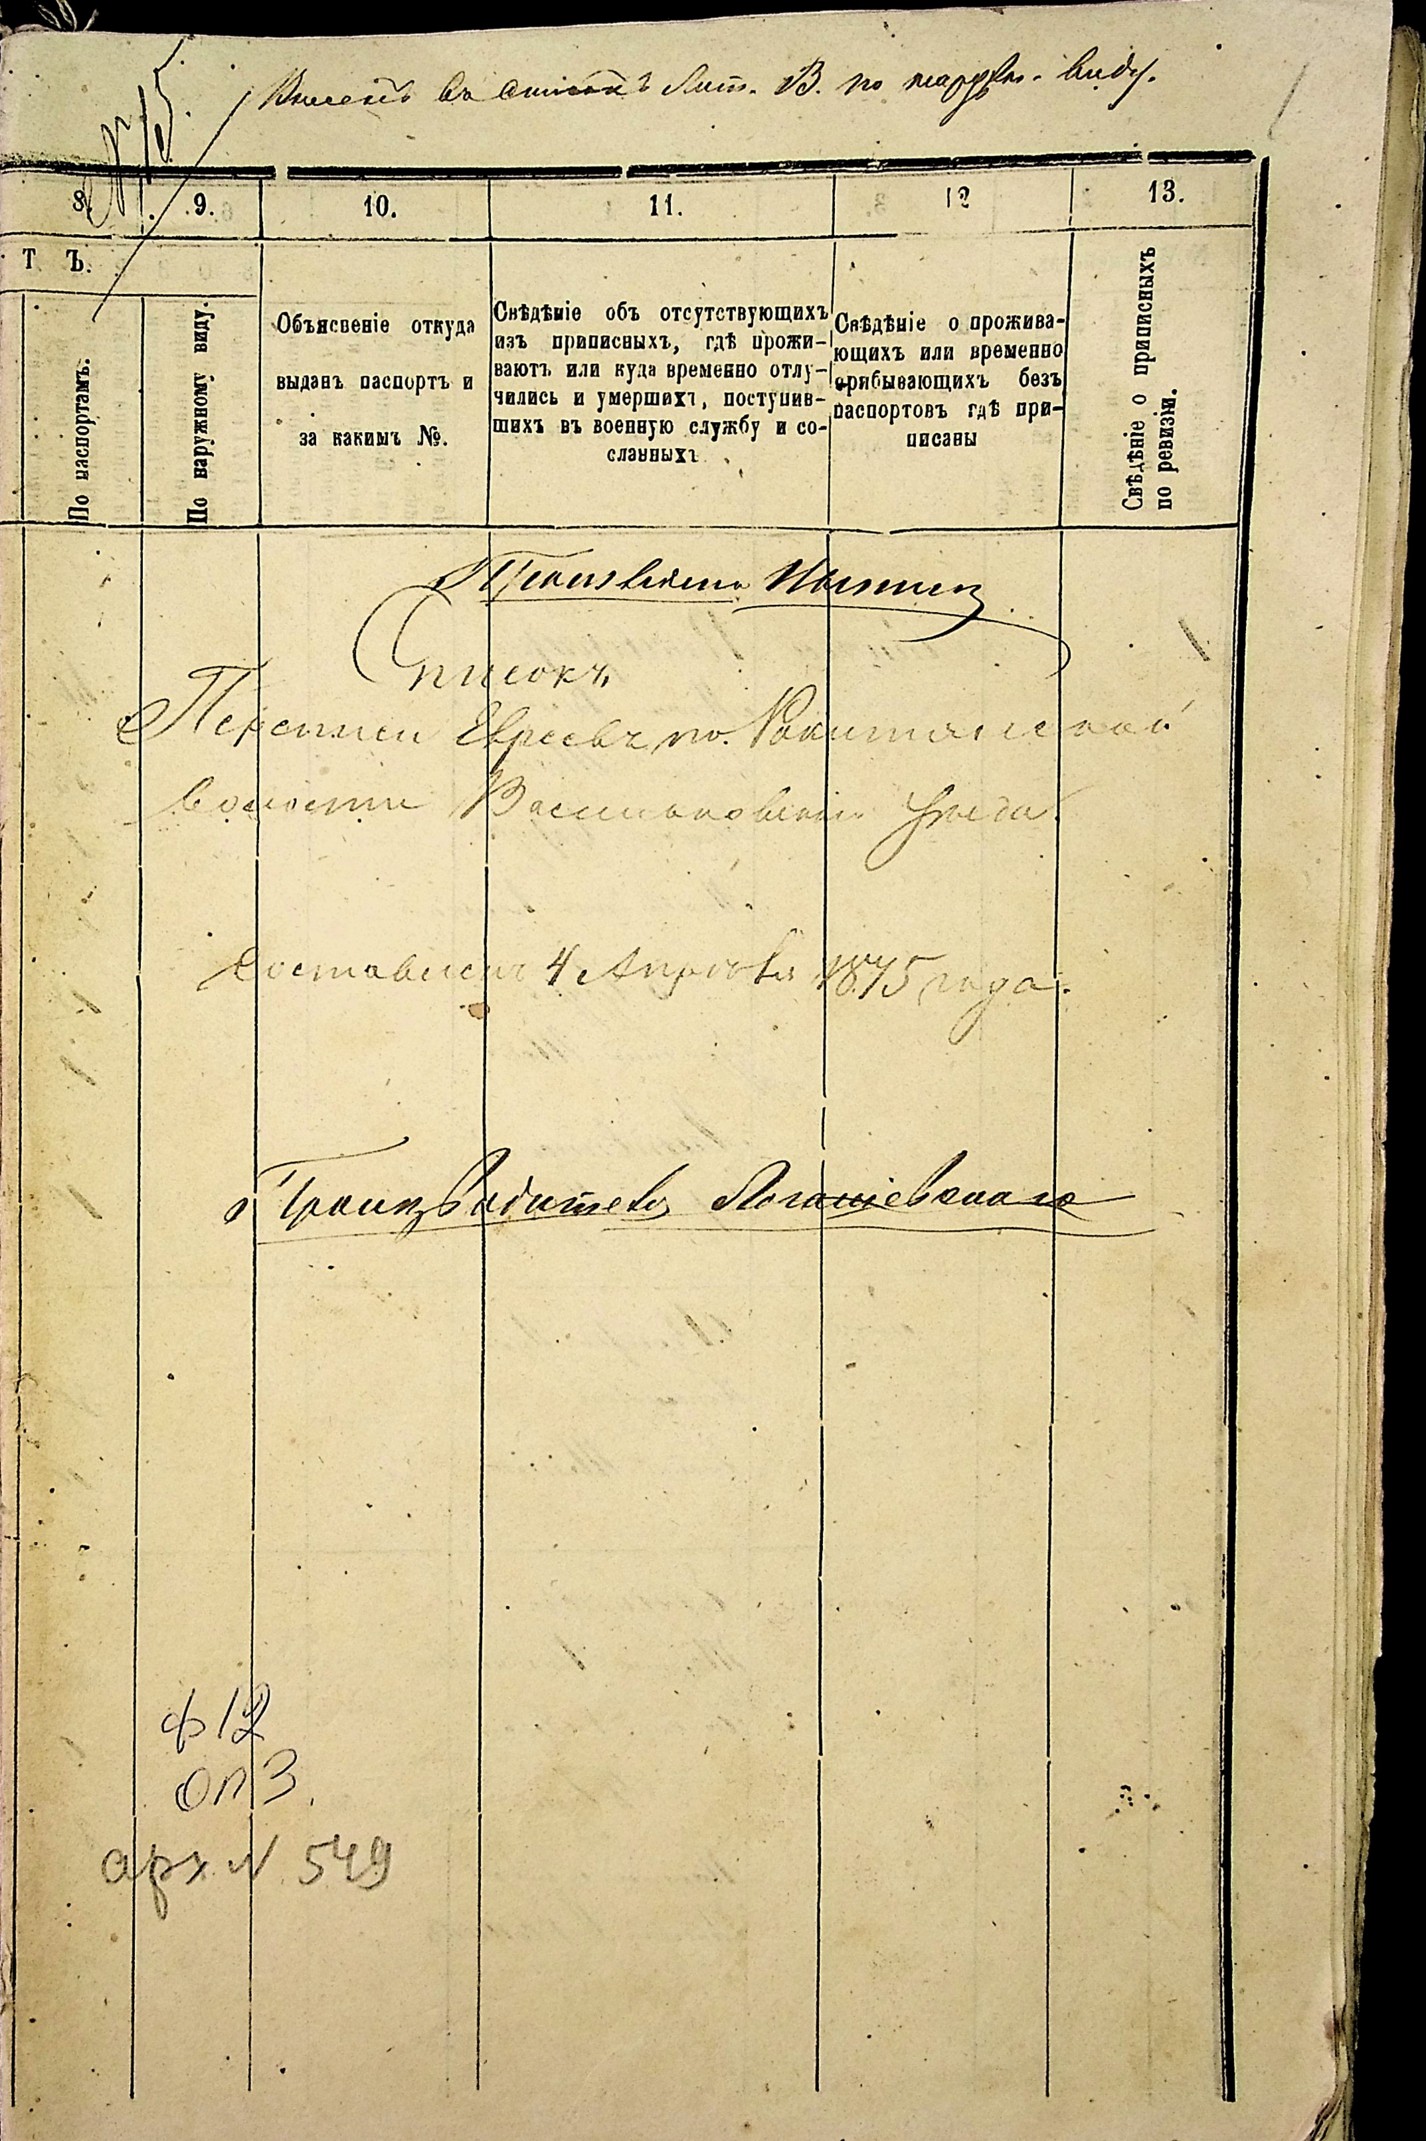 № 15.
Внесенъ въ списокъ Лит. В. по наружн. виду.
8. 9. 10. 11. 12 13.
Т Ъ.
По паспортамъ.
По наружному виду.
Объясненіе откуда
выданъ паспортъ и
за какимъ №.
Свѣдѣніе объ отсутствующихъ
изъ приписныхъ, гдѣ прожи-
ваютъ или куда временно отлу-
чились и умершихъ, поступив-
шихъ въ военную службу и со-
сланныхъ
Свѣдѣніе о прожива-
ющихъ или временно
прибывающихъ безъ
паспортовъ гдѣ при-
писаны
Свѣдѣніе о приписныхъ
по ревизіи.
Списокъ
Переписи Евреевъ по Ракитянской
волости Васильковскаго уѣзда.
Составленъ 4 Апрѣля 1875 года.
Производитель
ф 12
оп 3.
арх N 549